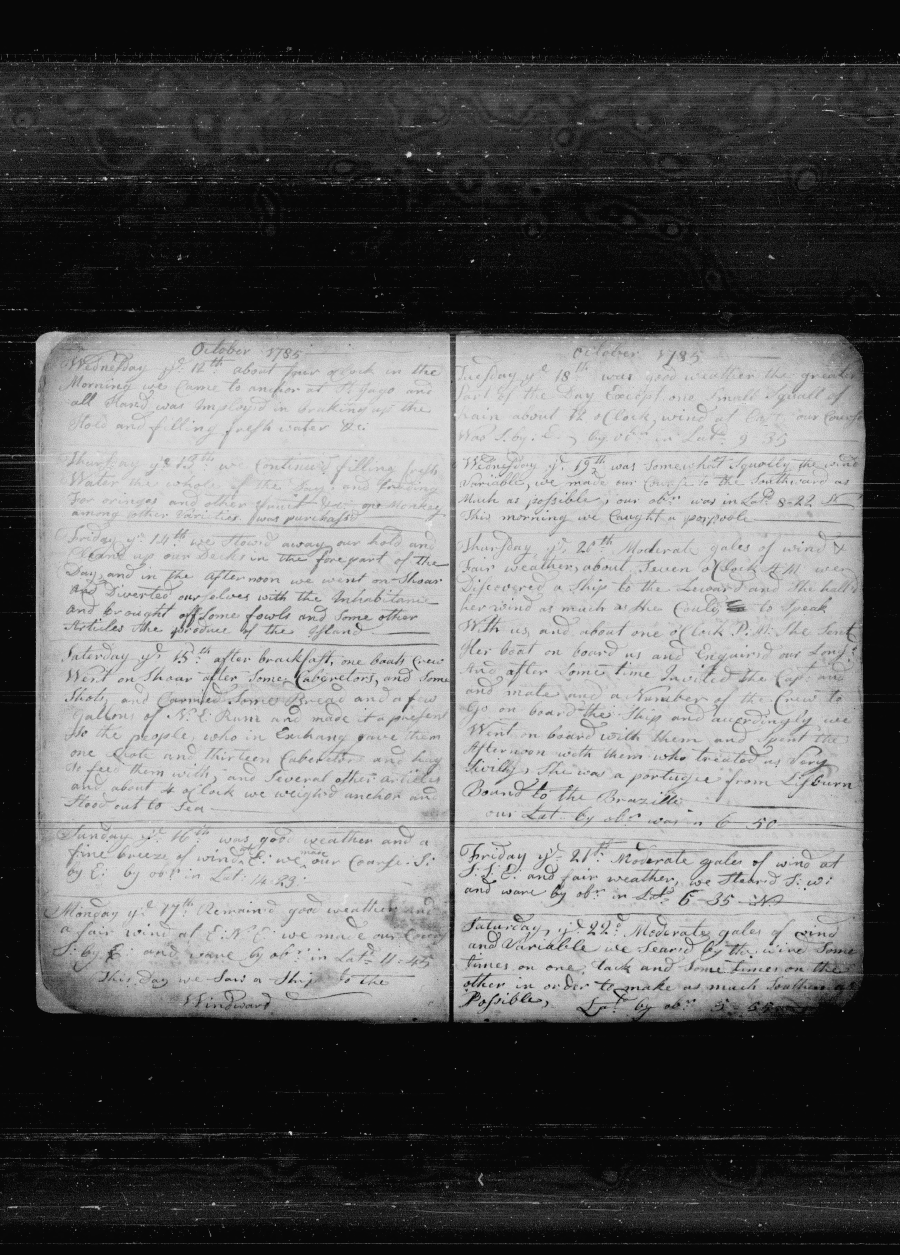 October 1785
Wednesday ye 12th about four oClock in the
Morning we Came to anchor at St Jago and
all Hand was Imploy'd in braking up the
Hold and filling fresh water &c:
Thursday ye 13th we Continued filling fresh
Water the whole of the Day, and trading
For oringes and other fruit &c: one Monkey
among other Varities was purchas'd
Friday ye 14th we Stow'd away our hold and
Cleand up our Decks in the forepart of the
Day, and in the afternoon we went on Shoar
And Diverted ourselves with the Inhabitants
and brought off Some fowls and Some other
Articles the produce of the Island
Saterday ye 15th after brackfast, one boats Crew
Went on Shoar after Some Caberetors, and Some
Shots, and Carried Some Bread and a few
Gallons of N: E: Rum and made it a present
to the people, who in Exchang gave them
one and thirteen Caberetors and hay
to fee them with, and Several other articles
and about 4 oClock we weigh'd anchor and
Stood out to Sea
Sunday ye 16th was good weather and a
fine breeze of wind at E: we made our Coarse S:
by E: by obs: in Lat: 14-23
Monday ye 17th Remain'd good weather and
a fair wind at E: N: E: we made our Course
S: by E: and ware by obs: in Lat: 11-45
This Day we Saw a Ship to the
Windward
October 1785
Tuesday ye 18th was good weather the greatest
Part of the Day Except one Small Squall of
rain about 12 oClock, wind at East, our Course
Was S: by E: by obs: in Lat: 9 35
Wednesday ye 19th was Somewhat Squally the wind
Variable, we made our Course to the Southward as
Much as possible, our obs: was in Lat: 8-22 N
This morning we Caught a porpoole
Thursday ye 20th Moderate gales of wind &
Fair weather, about Seven oClock A M we
Discovered a Ship to the Leward and She hall'd
her wind as much as She Could to Speak
With us, and about one oClock P: M: She Sent
Her boat on board us and Enquired our Long:
And after Some time Invited the Capt: and
and mate and a Number of the Crew to
Go on board the Ship and accordingly we
Went on board with them and Spent the
Afternoon with them who treated us Very
Sivilly, She was a portugee from Lisburn
Bound to the Brazills
our Lat: by obs: was n 6 50
Friday ye 21st Moderate gales of wind at
S: S: E: and fair weather, we Steard S: W:
and ware by obs: in Lat: 6-35 N
Saturday, ye 22d Moderate gales of wind
and Variable we Seard by the wind Some
times on one tack and Some times on the
other in order to make as much Southen as
Possible, Lat: by obs: 5